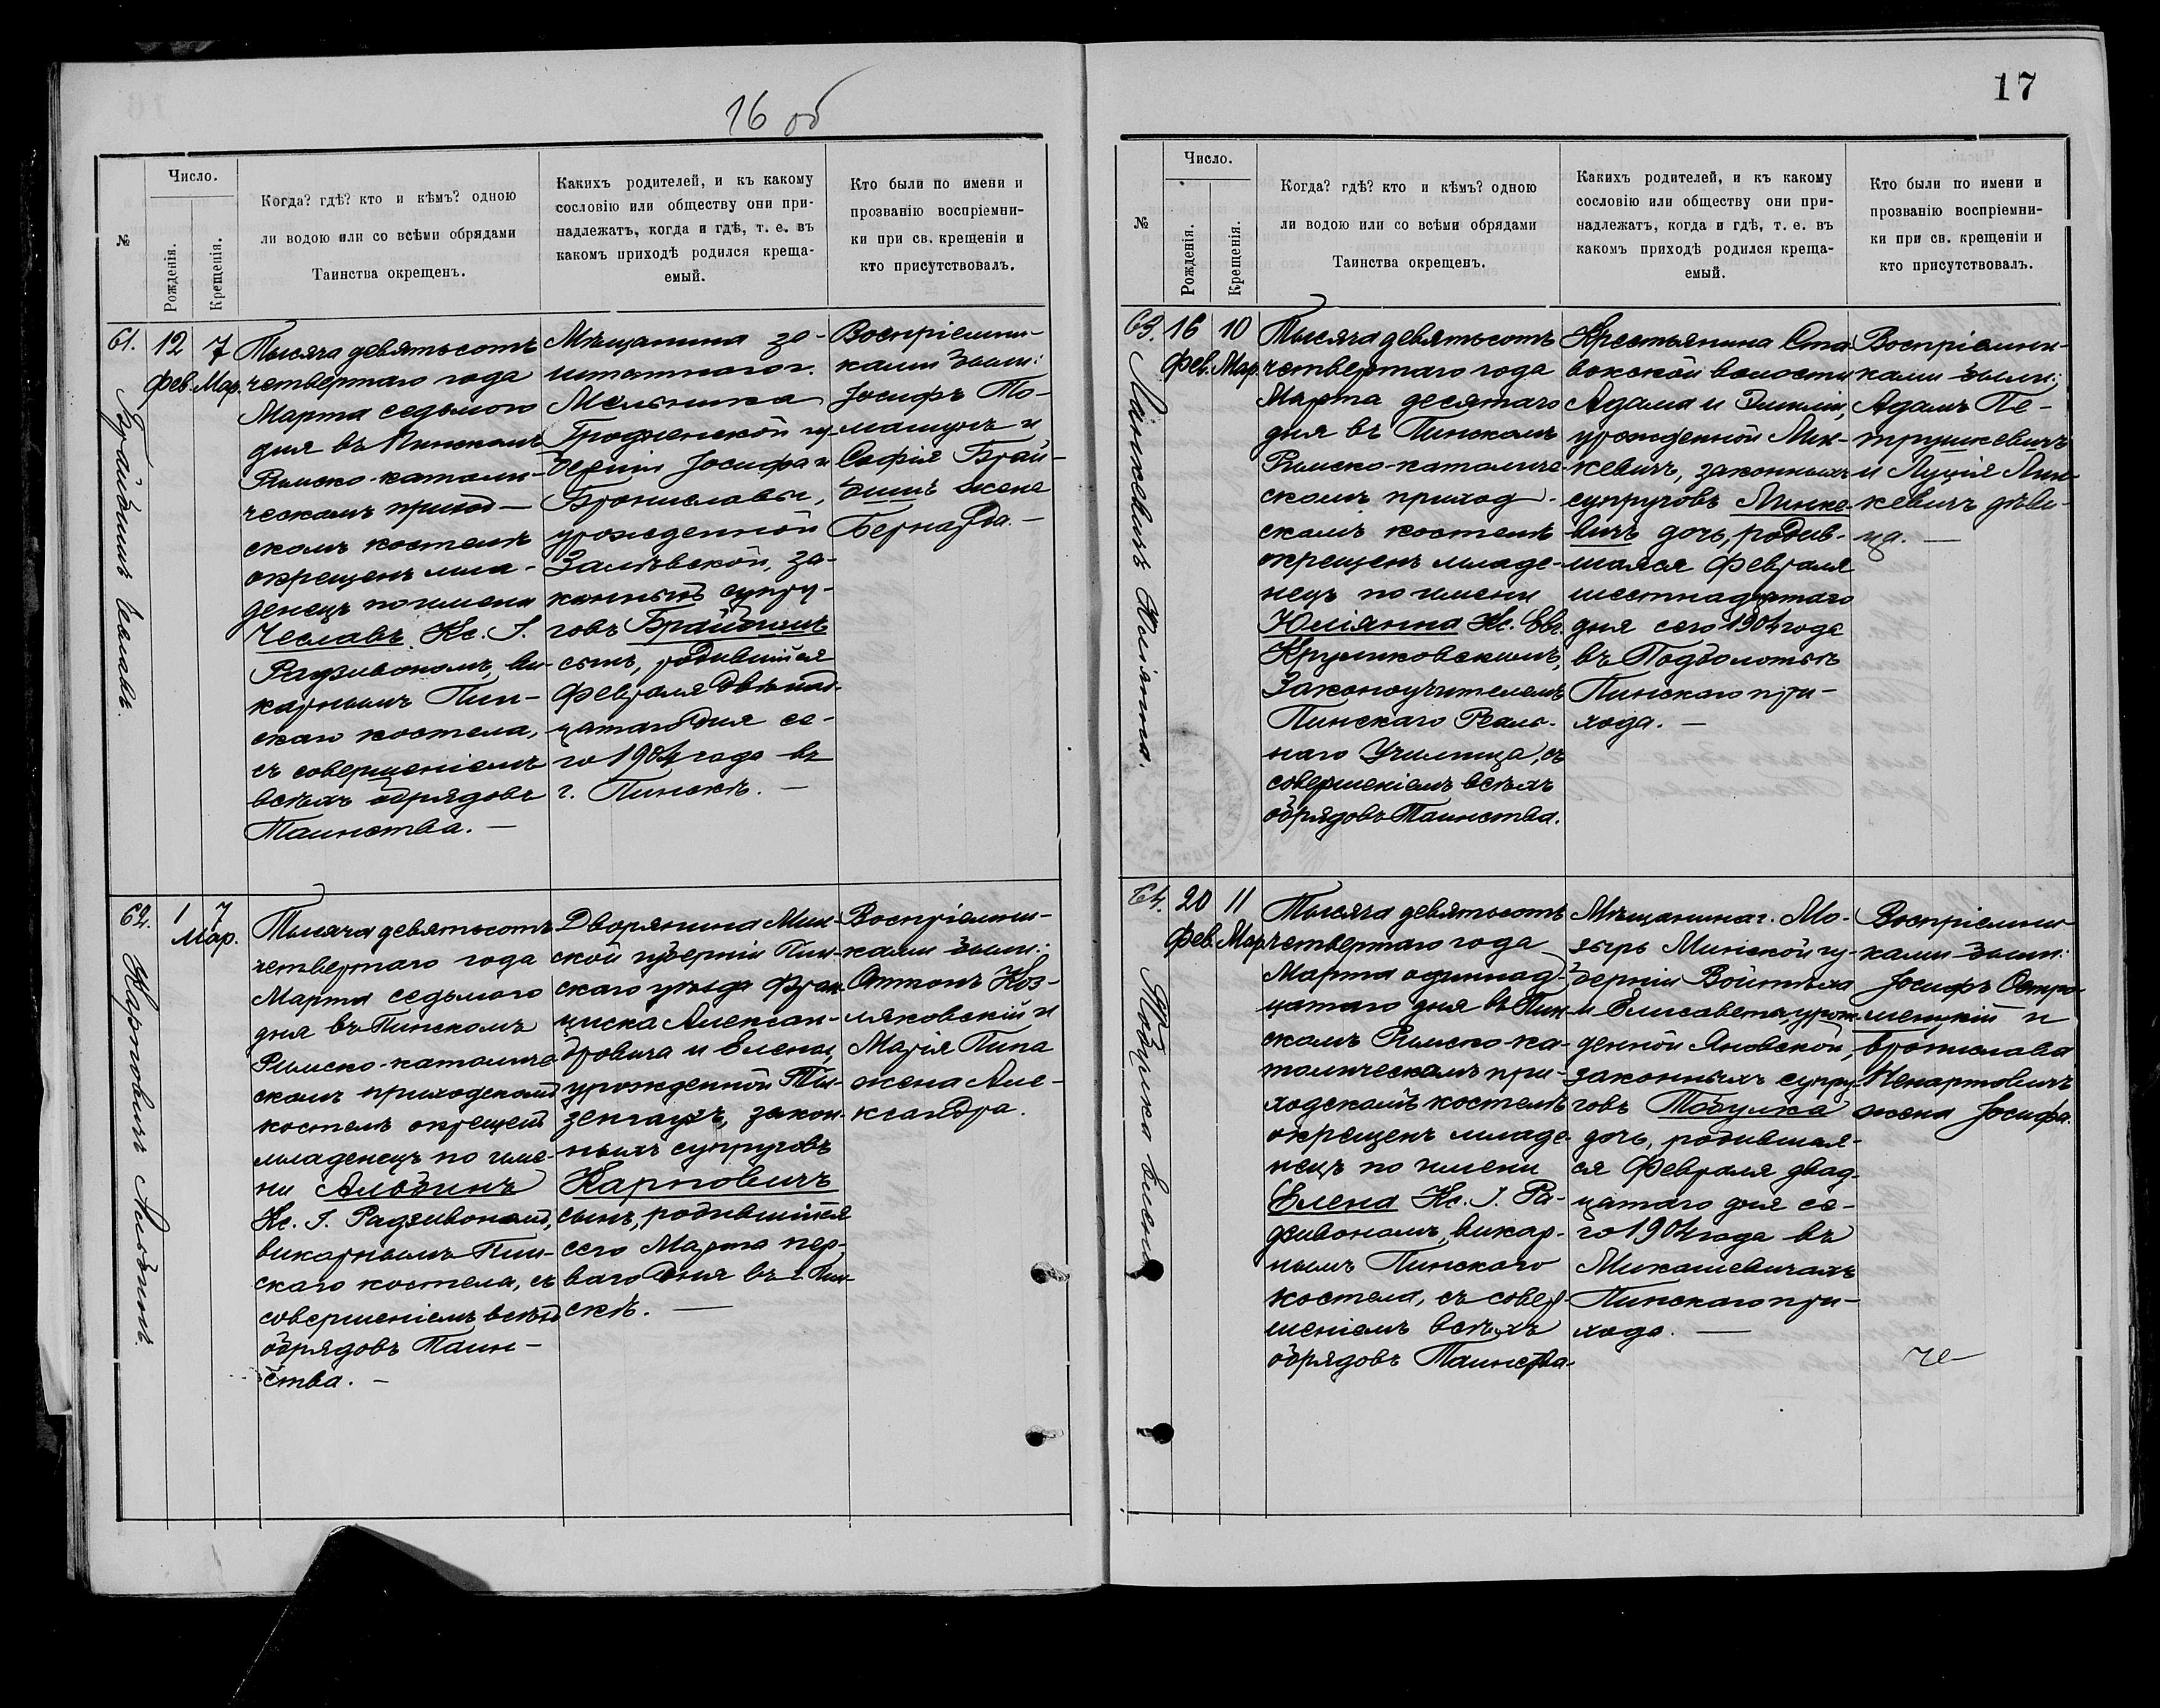 16 об
№
Число.
Рожденія.
Крещенія.
Когда? гдѣ? кто и кѣмъ? одною
ли водою или со всѣми обрядами
Таинства окрещенъ.
Какихъ родителей, и къ какому
сословію или обществу они при-
надлежатъ, когда и гдѣ, т. е. въ
какомъ приходѣ родился креща-
емый.
Кто были по имени и
прозванію воспріемни-
ки при св. крещеніи и
кто присутствовалъ.
61.
Чеславъ.
12
Фев.
7
Мар.
Тысяча девятьсотъ
четвертаго года
Марта седьмого
дня въ Пинскомъ
Римско-католи-
ческомъ приход-
скомъ костелѣ
окрещенъ мла-
денецъ по имени
Чеславъ Кс. І.
Радзивономъ, ви-
карнымъ Пин-
скаго костела,
съ совершеніемъ
всѣхъ обрядовъ
Таинства. —
Мѣщанина за-
штатного г.
Мельника
Гродненской гу-
берніи Іосифа и
Брониславы,
урожденной
Залѣвской, за-
конныхъ супру-
говъ
сынъ, родившійся
Февраля двѣнад-
цатаго дня се-
го 1904 года въ
г. Пинскѣ. —
Воспріемни-
ками были:
Іосифъ То-
машукъ и
Софія
жена
Бернарда. —
62.
Карповичъ Альбинъ.
1
7
Мар.
Тысяча девятьсотъ
четвертаго года
Марта седьмого
дня въ Пинскомъ
Римско-католиче
скомъ приходскомъ
костелѣ окрещенъ
младенецъ по име-
ни Альбинъ
Кс. І. Радзивономъ,
викарнымъ Пин-
скаго костела, съ
совершеніемъ всѣхъ
обрядовъ Таин-
ства. —
Дворянина Мин-
ской губерніи Пин-
скаго уѣзда Фран-
циска Алексан-
дровича и Елены,
урожденной
закон-
ныхъ супруговъ
Карповичъ
сынъ, родившійся
сего Марта пер-
ваго дня въ г. Пин
скѣ. —
Воспріемни-
ками были:
Антонъ Коз-
ляковскій и
Марія
жена Але-
ксандра.
17
№
Число.
Рожденія.
Крещенія.
Когда? гдѣ? кто и кѣмъ? одною
ли водою или со всѣми обрядами
Таинства окрещенъ.
Какихъ родителей, и къ какому
сословію или обществу они при-
надлежатъ, когда и гдѣ, т. е. въ
какомъ приходѣ родился креща-
емый.
Кто были по имени и
прозванію воспріемни-
ки при св. крещеніи и
кто присутствовалъ.
63.
Юліанна.
16
Фев.
10
Мар.
Тысяча девятьсотъ
четвертаго года
Марта десятаго
дня въ Пинскомъ
Римско-католиче-
скомъ приход-
скомъ костелѣ
окрещенъ младе-
нецъ по имени
Юліанна Кс.
Круликовскимъ,
Законоучителемъ
Пинскаго Реаль-
наго Училища, съ
совершеніемъ всѣхъ
обрядовъ Таинства.
Крестьянина Ста
вокской волости
Адама и Эмиліи,
урожденной
кевичъ, законныхъ
супруговъ
вичъ дочь, родив-
шаяся Февраля
шестнадцатаго
дня сего 1904 года
въ Подболотьѣ
Пинскаго при-
хода. —
Воспріемни-
ками были:
Адамъ Пе-
трушкевичъ
и Луція
кевичъ дѣви-
ца. —
64.
Тобулко Елена.
20
Фев.
11
Мар.
Тысяча девятьсотъ
четвертаго года
Марта одиннад-
цатаго дня въ Пин
скомъ Римско-ка-
толическомъ при-
ходскомъ костелѣ
окрещенъ младе-
нецъ по имени
Елена Кс. І. Ра-
дзивономъ, викар-
нымъ Пинскаго
костела, съ совер-
шеніемъ всѣхъ
обрядовъ Таинства.
Мѣщанина г. Мо-
зырь Минской гу-
берніи Войтѣха
и Елисаветы, урож-
денной Яновской,
законныхъ супру-
говъ Тобулко
дочь, родившая-
ся Февраля двад-
цатаго дня се-
го 1904 года въ
Микашевичахъ
Пинскаго при-
хода. —
Воспріемни
ками были:
Іосифъ Остро
менцкій и
Бронислава
жена Іосифа.